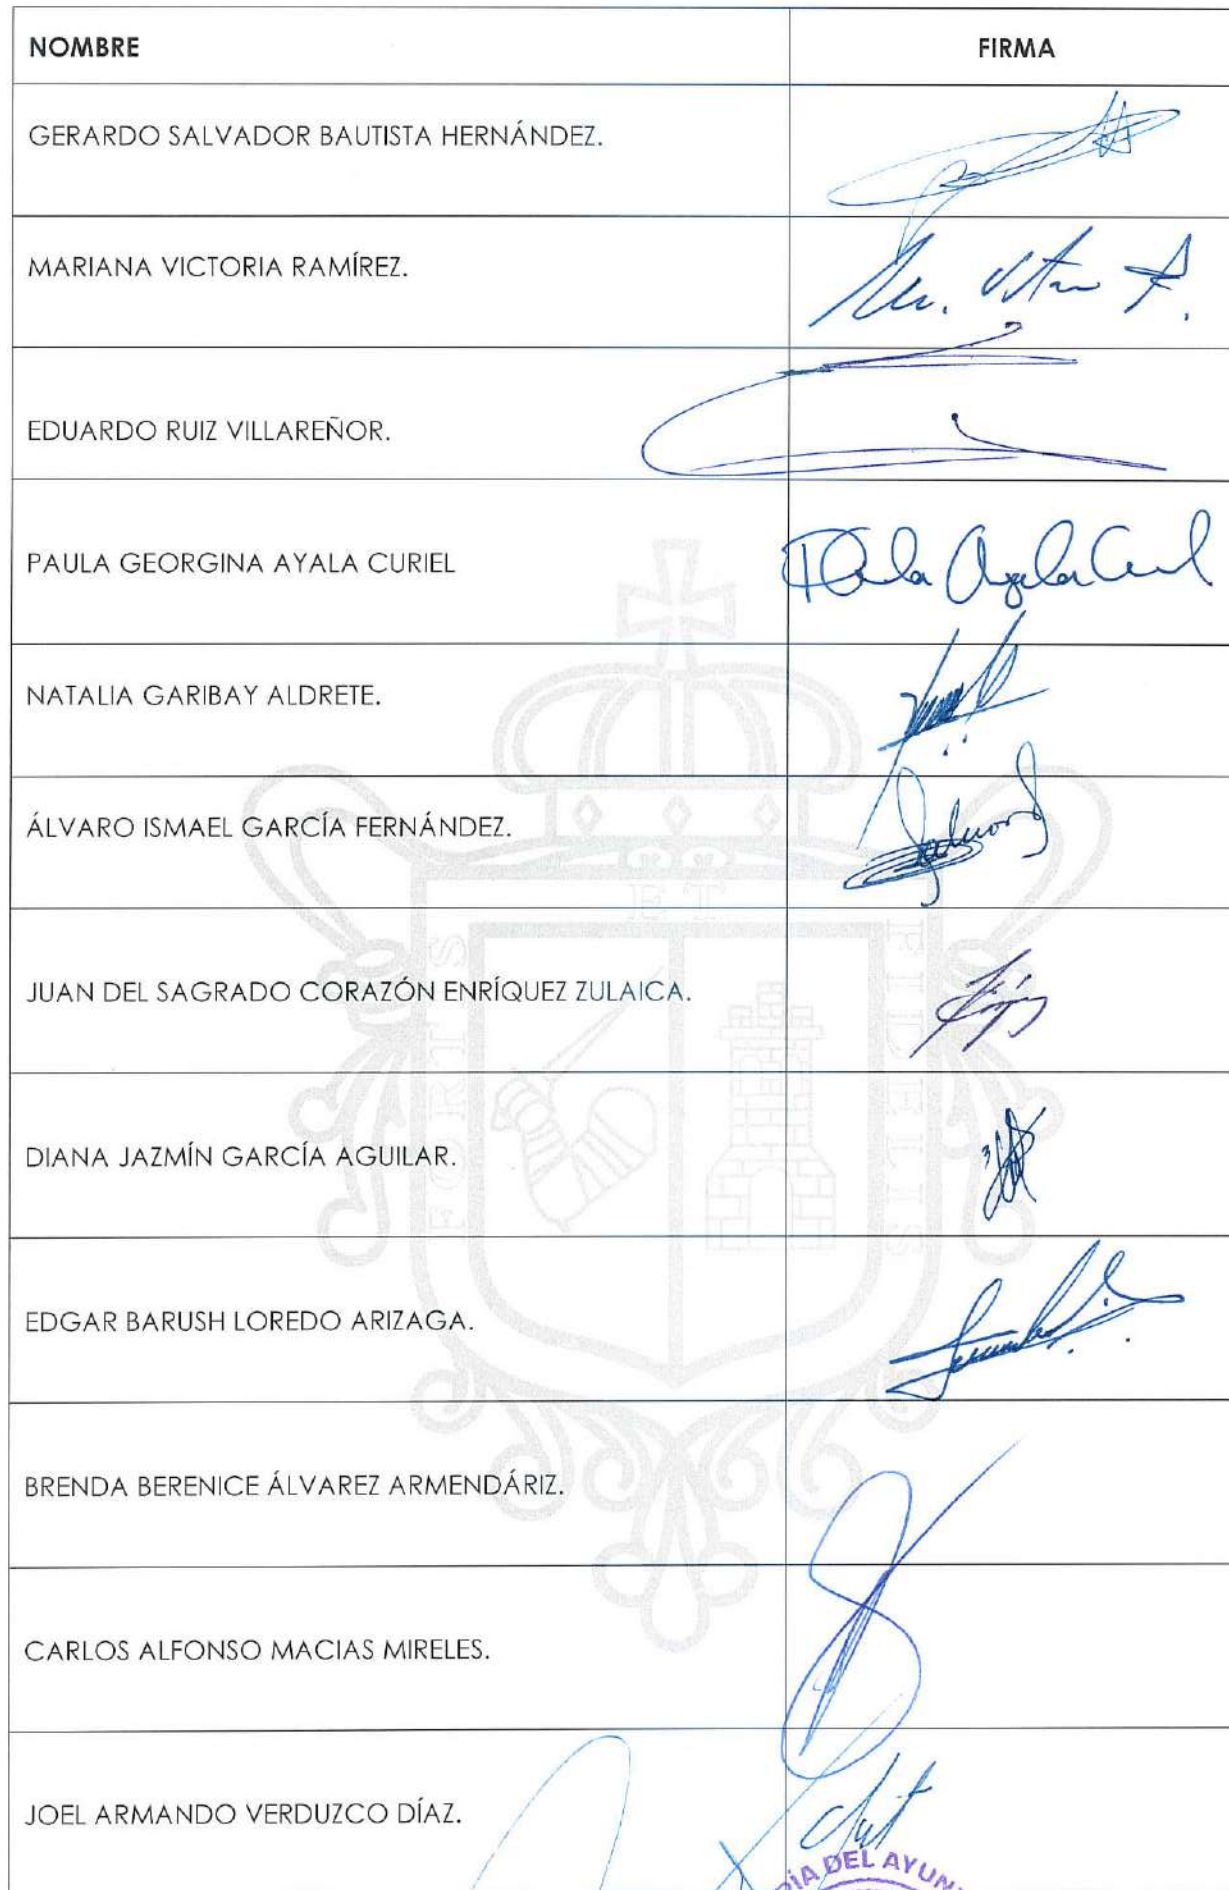 NOMBRE FIRMA
GERARDO SALVADOR BAUTISTA HERNÁNDEZ.
MARIANA VICTORIA RAMÍREZ.
EDUARDO RUIZ VILLAREÑOR.
PAULA GEORGINA AYALA CURIEL Paula Ayala Curiel
NATALIA GARIBAY ALDRETE.
ÁLVARO ISMAEL GARCÍA FERNÁNDEZ.
ET
FORIS
FIDELIS
JUAN DEL SAGRADO CORAZÓN ENRÍQUEZ ZULAICA.
DIANA JAZMÍN GARCÍA AGUILAR.
EDGAR BARUSH LOREDO ARIZAGA.
BRENDA BERENICE ÁLVAREZ ARMENDÁRIZ.
CARLOS ALFONSO MACIAS MIRELES.
JOEL ARMANDO VERDUZCO DÍAZ.
DEL